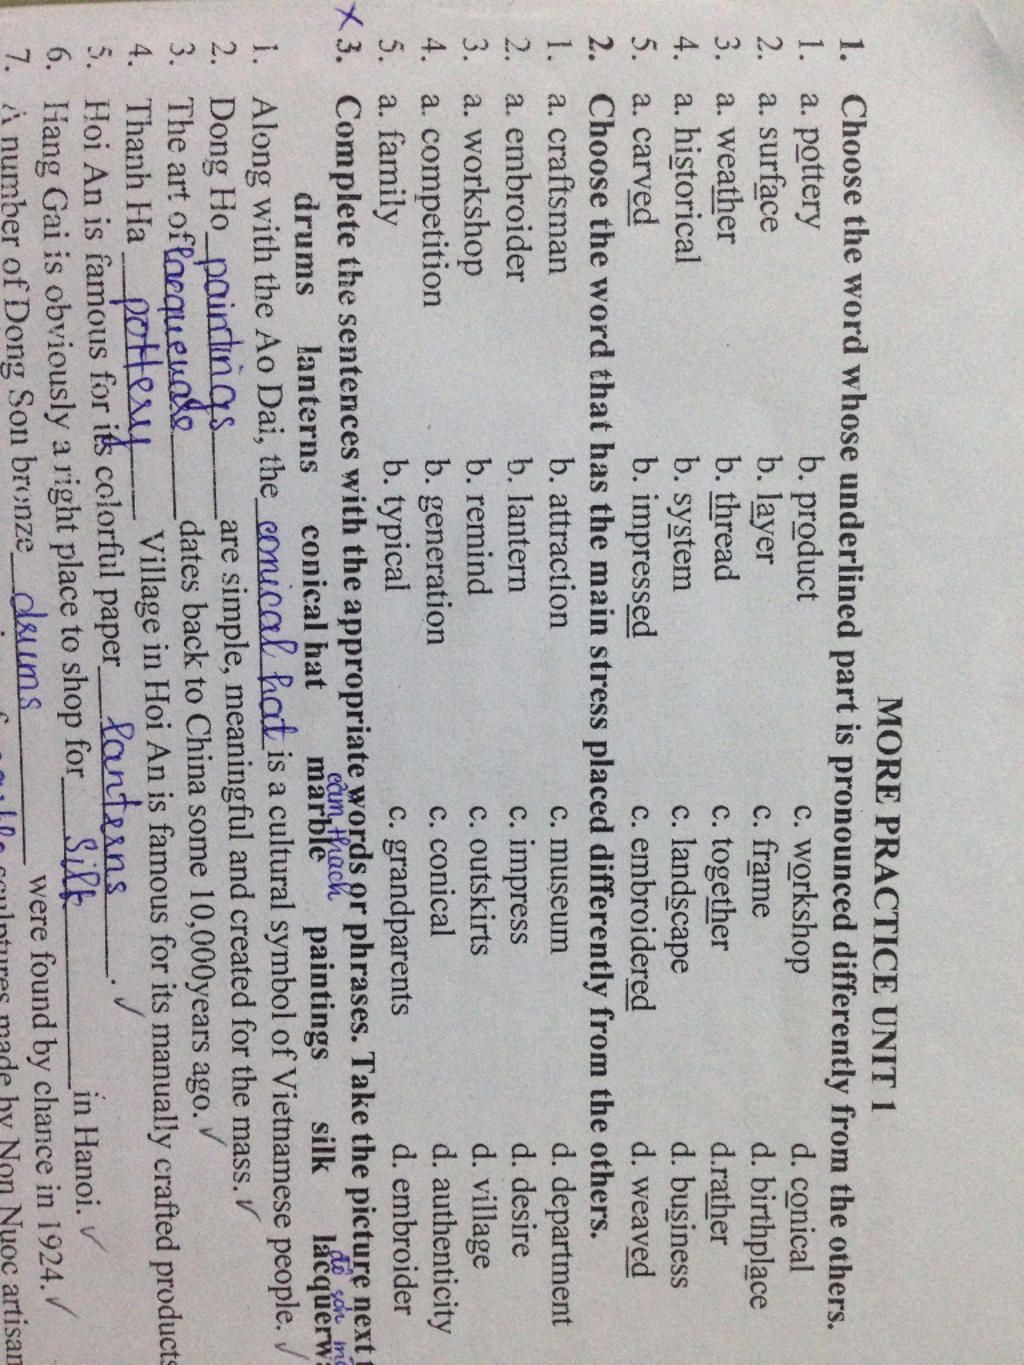 MORE PRACTICE UNIT 1
1. Choose the word whose underlined part is pronounced differently from the others.
1. a. pottery b. product c. workshop d. conical
2. a. surface b. layer c. frame d. birthplace
3. a. weather b. thread c. together d.rather
4. a. historical b. system c. landscape d. business
5. a. carved b. impressed c. embroidered d. weaved
2. Choose the word that has the main stress placed differently from the others.
1. a. craftsman b. attraction c. museum d. department
2. a. embroider b. lantern c. impress d. desire
3. a. workshop b. remind c. outskirts d. village
4. a. competition b. generation c. conical d. authenticity
5. a. family b. typical c. grandparents d. embroider
x 3. Complete the sentences with the appropriate words or phrases. Take the picture next
cẩm thạch đồ sơn
drums lanterns conical hat marble paintings silk lacquerw
1. Along with the Ao Dai, the conical hat is a cultural symbol of Vietnamese people. ✓
2. Dong Ho paintings are simple, meaningful and created for the mass. ✓
3. The art of dates back to China some 10,000years ago. ✓
4. Thanh Ha pottery Village in Hoi An is famous for its manually crafted products
5. Hoi An is famous for its colorful paper lanterns. ✓
6. Hang Gai is obviously a right place to shop for silk in Hanoi. ✓
7. A number of Dong Son bronze drums were found by chance in 1924. ✓
sculptures made by Non Nuoc artisan